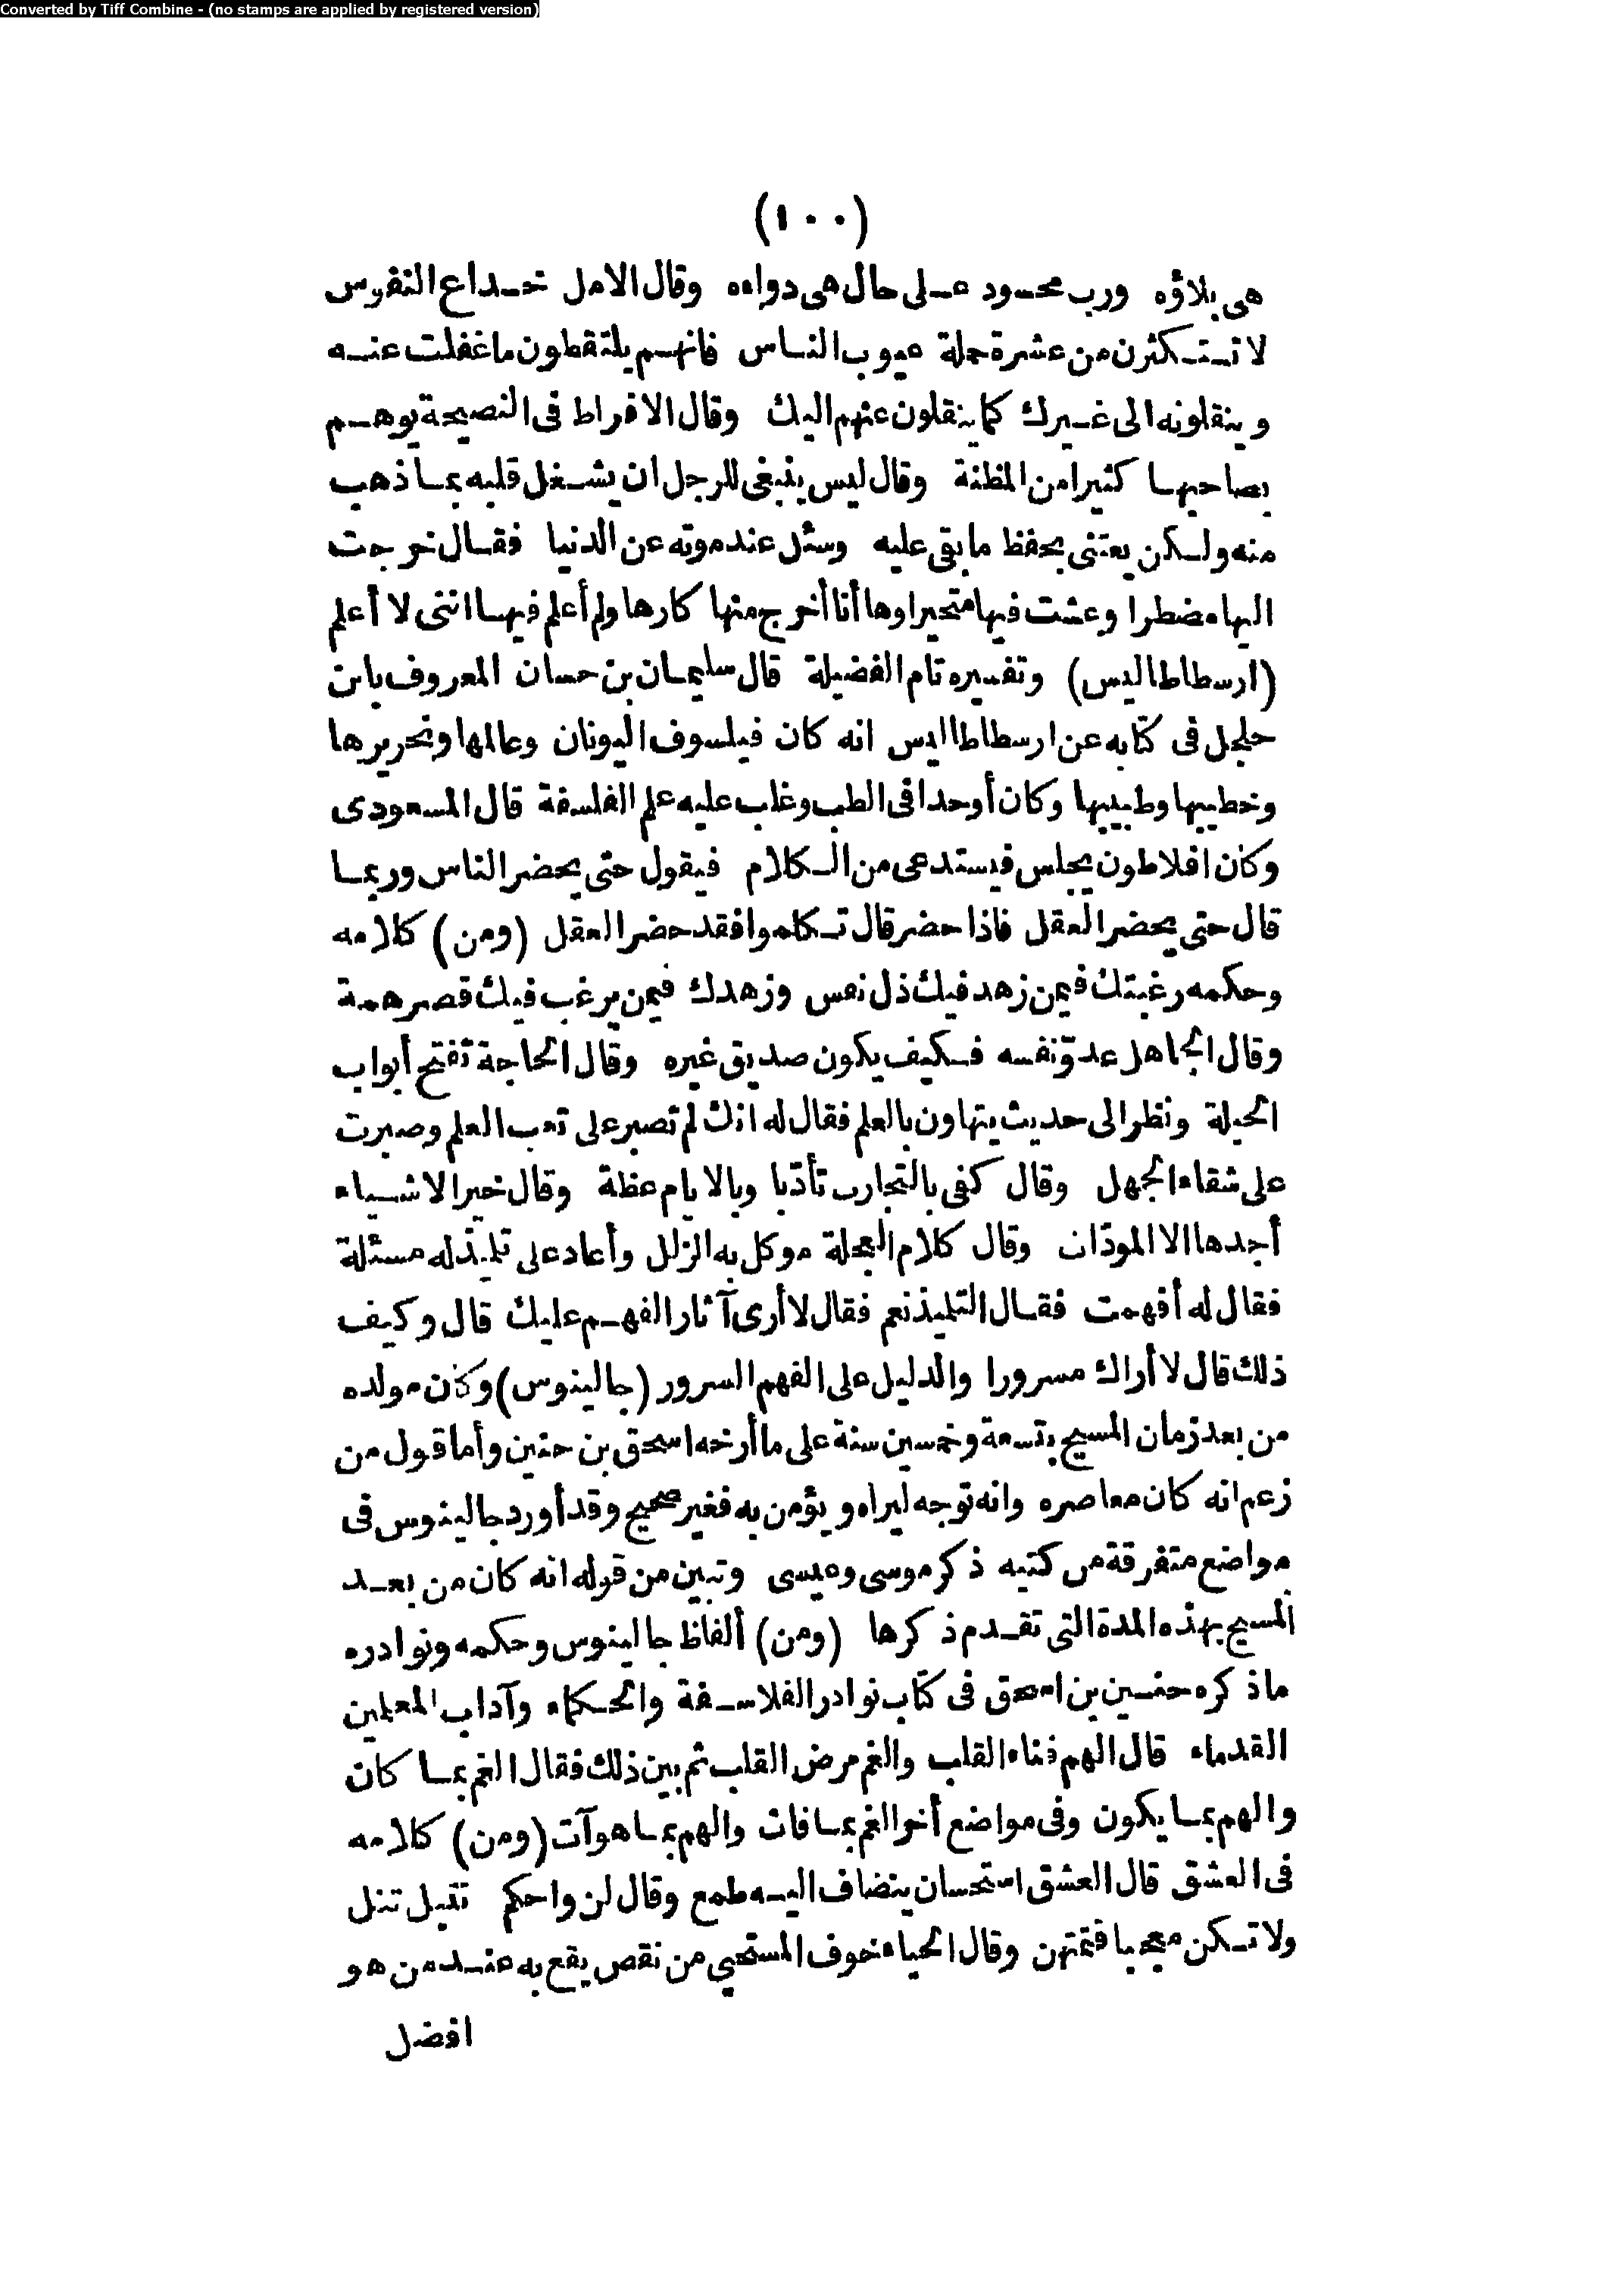 Converted by Tiff Combine - (no stamps are applied by registered version)
(١٠٠)
هى بلاؤه ورب محسود على حال هى دواءه وقال الامل خداع النفوس
لا تستكثرن من عشرة حملة عيوب الناس فانهم يلتقطون ما غفلت عنه
وينقلونه الى غيرك كما ينقلون عنهم اليك وقال الافراط فى النصيحة يوهم
بصاحبها كثيرا من المظنة وقال ليس ينبغى للرجل ان يشغل قلبه بما ذهب
منه ولكن يعتنى بحفظ ما بقى عليه وسئل عند موته عن الدنيا فقال خرجت
اليها مضطرا وعشت فيها متحيرا وها أنا أخرج منها كارها ولم أعلم فيها اننى لا أعلم
(ارسطاطاليس) وتفسيره تام الفضيلة قال سليمان بن حسان المعروف بابن
جلجل فى كتابه عن ارسطاطاليس انه كان فيلسوف اليونان وعالمها ونحريرها
وخطيبها وطبيبها وكان أوحدا فى الطب وغلب عليه علم الفلسفة قال المسعودى
وكان افلاطون يجلس فيستدعى من الكلام فيقول حتى يحضر الناس وربما
قال حتى يحضر العقل فاذا حضر قال تكلموا فقد حضر العقل (ومن) كلامه
وحكمه رغبتك فيمن زهد فيك ذل نفس وزهدك فيمن يرغب فيك قصر همة
وقال الجاهل عدوّ نفسه فكيف يكون صديق غيره وقال الحاجة تفتح أبواب
الحيلة ونظر الى حديث يتهاون بالعلم فقال له انك لم تصبر على تعب العلم وصبرت
على شقاء الجهل وقال كفى بالتجارب تأدّبا وبالايام عظة وقال خير الاشياء
أجدها الا المودّات وقال كلام العجلة موكل به الزلل وأعاد على تلميذ له مسئلة
فقال له أفهمت فقال التلميذ نعم فقال لا أرى آثار الفهم عليك قال وكيف
ذلك قال لا أراك مسرورا والدليل على الفهم السرور (جالينوس) وكان مولده
من بعد زمان المسيح بتسعة وخمسين سنة على ما أرخه اسحق بن حنين وأما قول من
زعم انه كان معاصره وانه توجه ليراه ويؤمن به فغير صحيح وقد أورد جالينوس فى
مواضع متفرقة من كتبه ذكر موسى وعيسى وتبين من قوله انه كان من بعد
المسيح بهذه المدة التى تقدم ذكرها (ومن) ألفاظ جالينوس وحكمه ونوادره
ما ذكره حنين بن اسحق فى كتاب نوادر الفلاسفة والحكماء وآداب المعلمين
القدماء قال الهم فناء القلب والغم مرض القلب ثم بين ذلك فقال الغم بما كان
والهم بما يكون وفى مواضع أخر الغم بما فات والهم بما هو آت (ومن) كلامه
فى العشق قال العشق استحسان ينضاف اليه طمع وقال لن واحكم تنبل تنل
ولا تكن معجبا فتمتهن وقال الحياء خوف المستحيى من نقص يقع به عند من هو
افضل